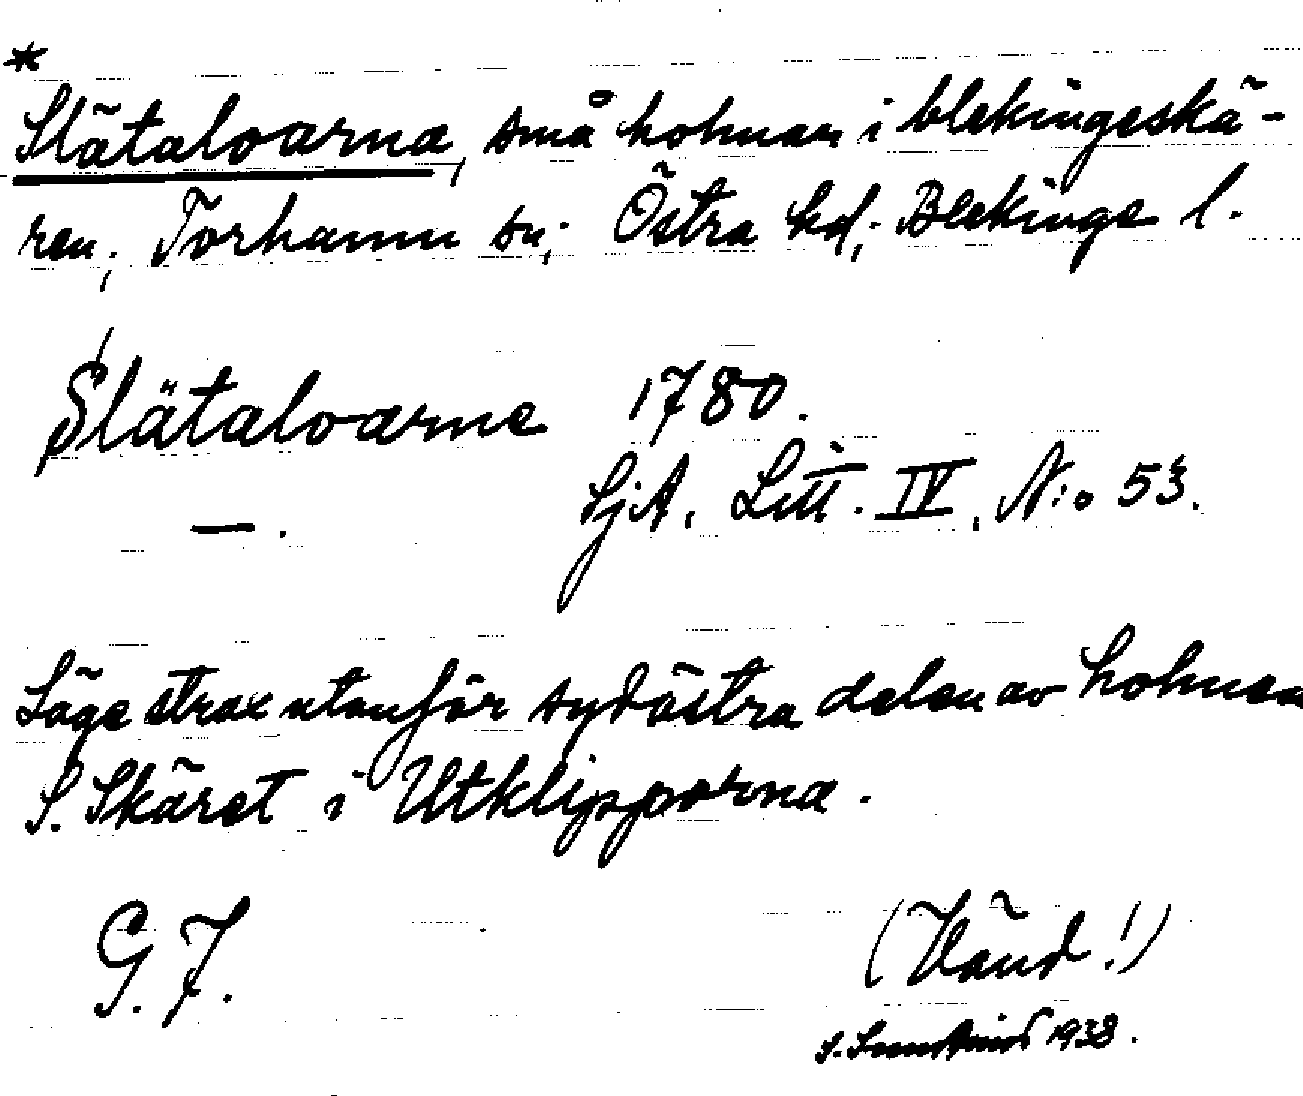 *
Slätaloarna, små holmar i blekingeskä-
ren; Torhamn sn; Östra hd; Blekinge l.
Slätaloarne 1780.
—. SjA. Litt. IV, N:o 53.
Läge strax utanför sydöstra delen av holmen
S. Skäret i Utklipporna.
G. F. (Vänd!)
1938.